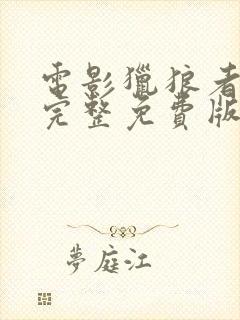 電影獵狼者
完整免費版
夢庭江